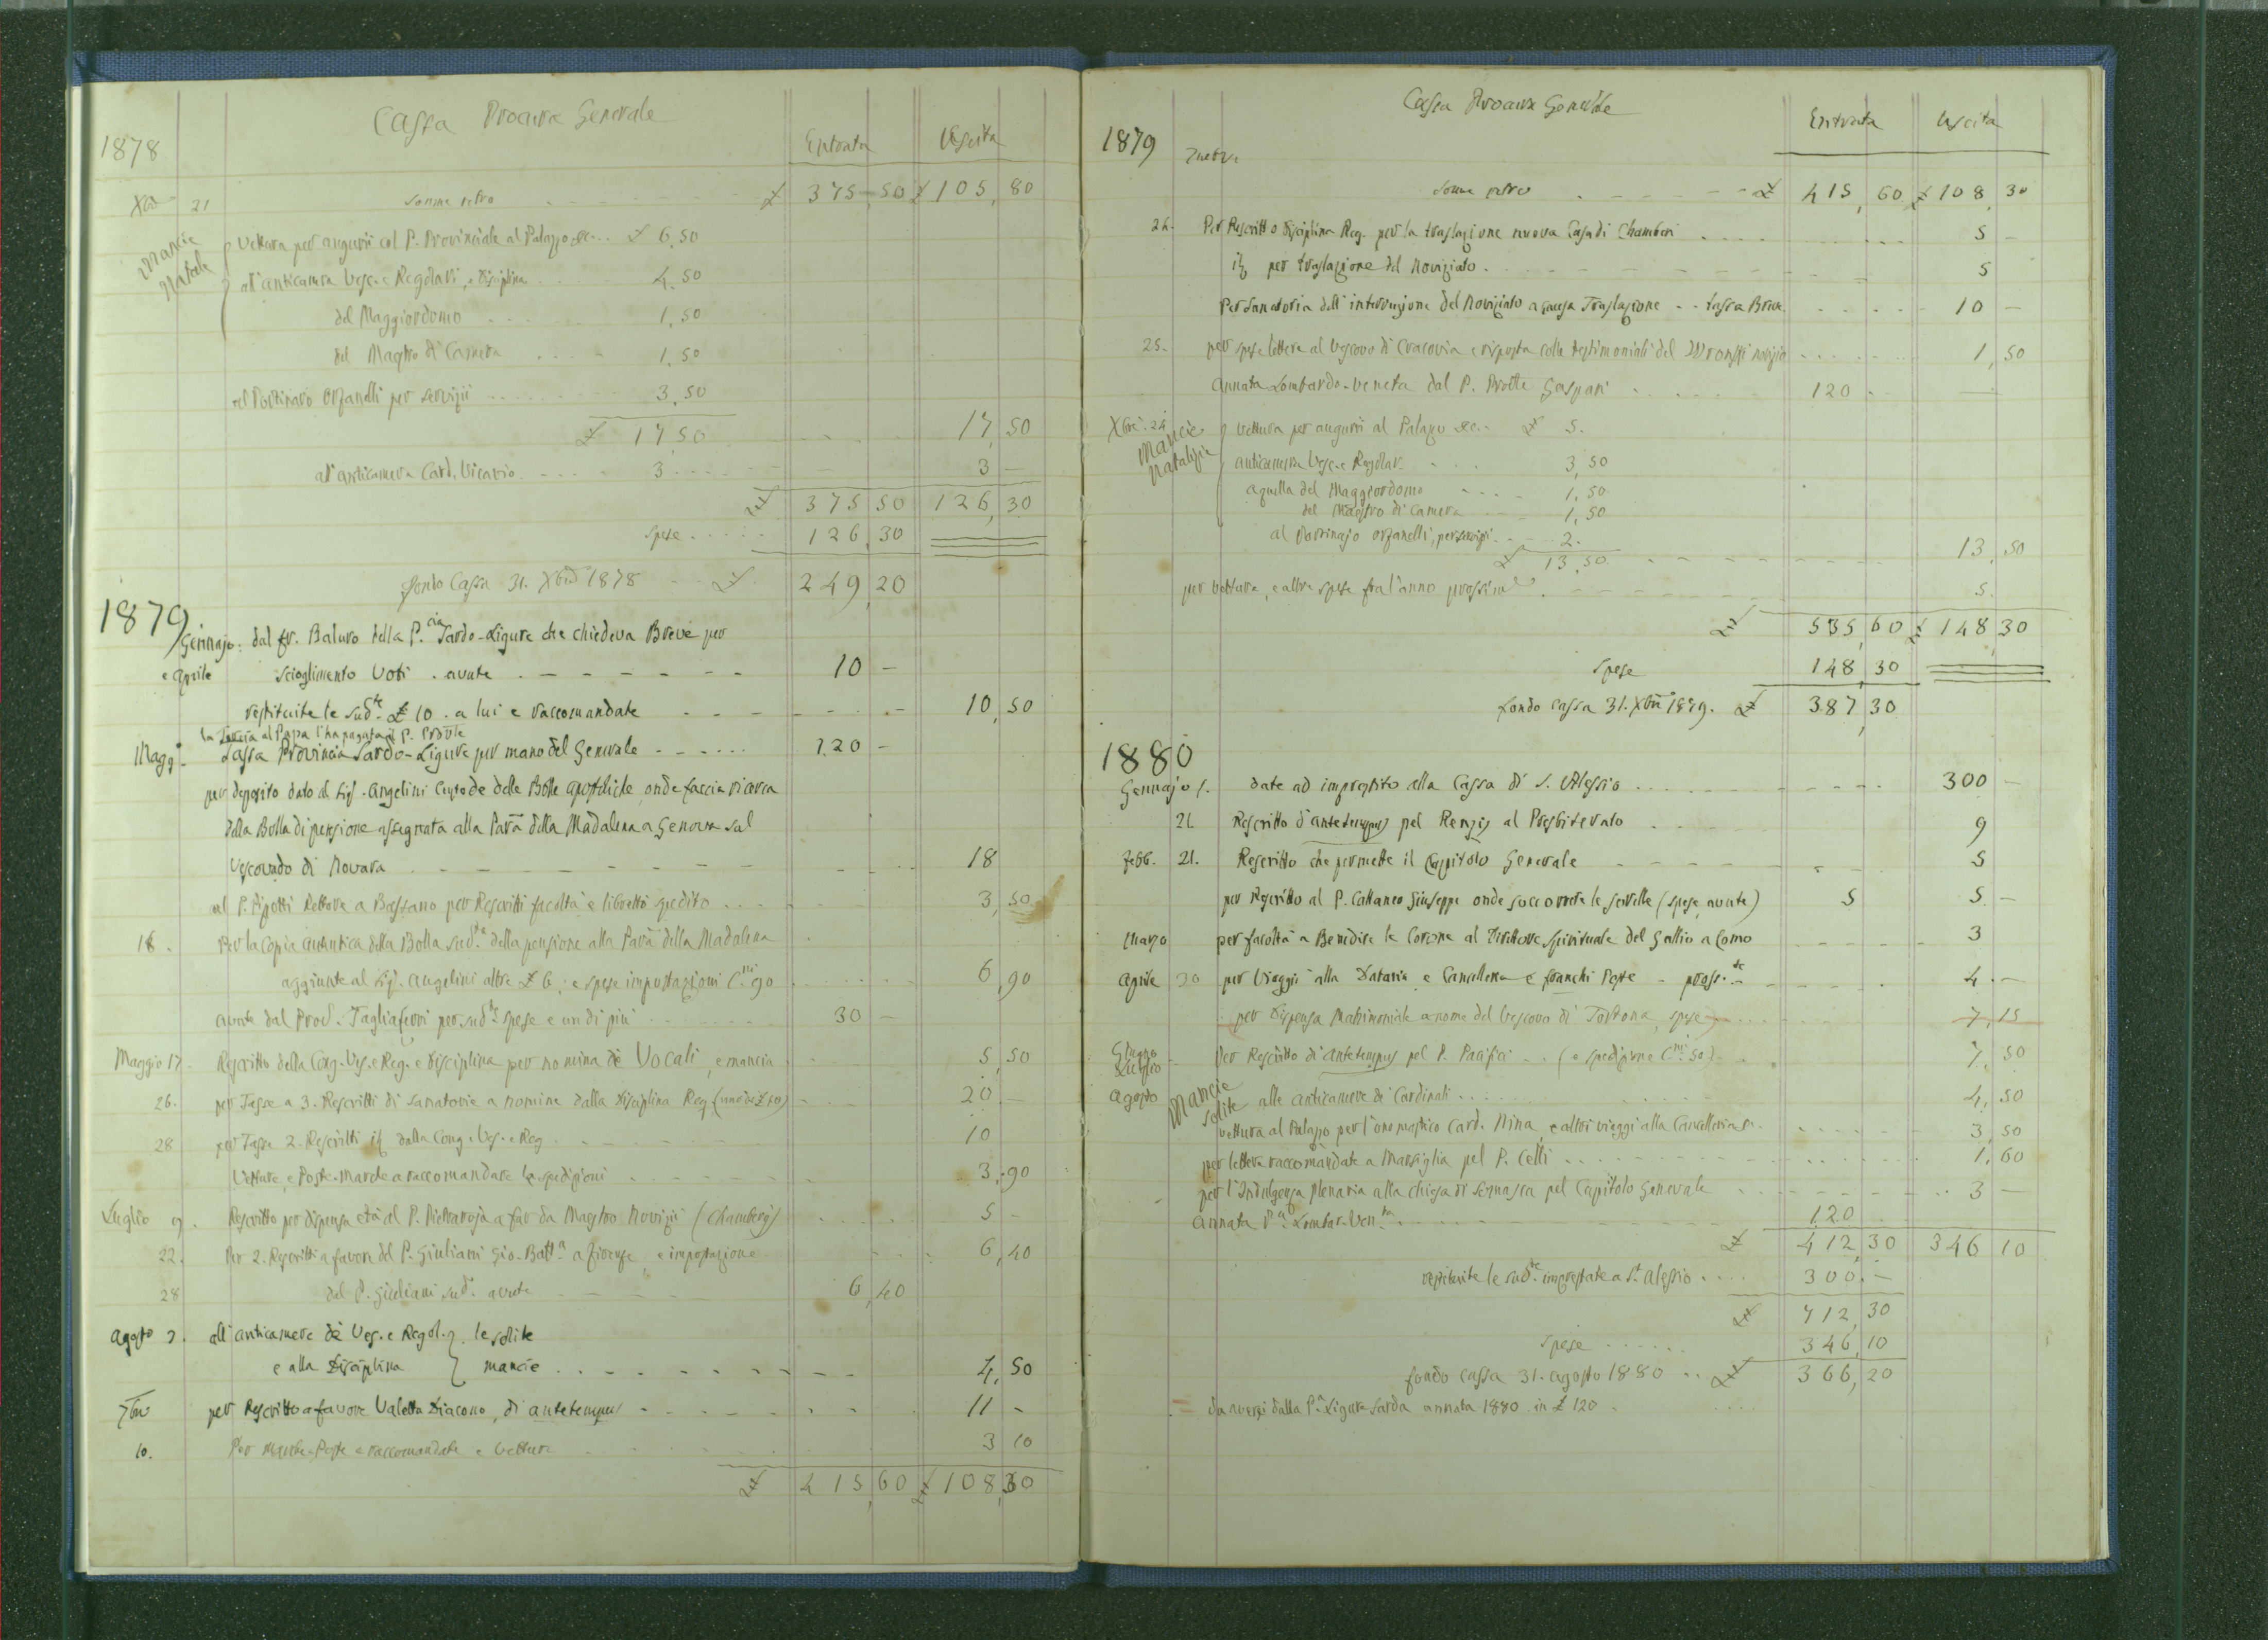 Cassa Procura Generale
1878
Entrata Uscita
Xbre 21 Somme retro £ 375,50 £ 105,80
Mancie Natale
Vettura per augurii col P. Provinciale al Palazzo &c... £ 6,50
all'anticamera Vesc. e Regolari, e Disciplina 4,50
del Maggiordomo 1,50
del Maestro di Camera 1,50
al Portinaro Orfanelli per servizii 3,50
£ 17,50 17,50
all'anticamera Card. Vicario 3 3 —
£ 375 50 126,30
Spese 126,30
fondo Cassa 31. Xbre 1878 £ 249,20
1879
Gennajo: dal fr. Baluro della P.cia Sardo-Ligure che chiedeva Breve per
e Aprile scioglimento Voti . avute 10 —
restituite le sud.te £ 10 . a lui e raccomandate 10,50
la Tassa al Papa l'ha pagata il P. Prov.le
Magg.o Tassa Provincia Sardo-Ligure per mano del Generale 120 —
per deposito dato al Sig. Angelini Custode delle Bolle apostoliche, onde faccia ricerca
della Bolla di pensione assegnata alla Parā della Madalena a Genova sul
Vescovado di Novara 18
al P. Pigotti Rettore a Bassano per Rescritti facoltà e libretti spedito 3,50
18. Per la Copia autentica della Bolla sud.ta della pensione alla Parā della Madalena
aggiunte al Sig. Angelini altre £ 6; e spese impostazioni C.mi 90 6,90
avute dal Prod. Tagliaferri per sud.te spese e un di più 30 —
Maggio 17. Rescritto della Cong. Ves. e Reg. e Disciplina per nomina de Vocali, e mancia 5,50
26. per Tasse a 3. Rescritti di Sanatorie a nomine dalla Disciplina Reg. (uno di £ 10) 20 —
28 per Tassa 2. Rescritti id dalla Cong. Ves. e Reg 10
Vetture, e Poste-Marche a raccomandare le spedizioni 3,90
Luglio 9. Rescritto per dispensa età al P. Pietraroja a far da Maestro Novizii (Chambery) 5 —
22. Per 2. Rescritti a favore del P. Giuliani Gio. Batt.a a Firenze, e impostazione 6,40
28 dal P. Giuliani sud.o avute 6,40
Agosto 2. all'anticamere de Ves. e Regol. } le solite
e alla Disciplina } mancie 4,50
7bre per Rescritto a favore Valetta Diacono, di antetempus 11 —
10. Per Marche-Poste e raccomandate e Vetture 3 10
£ 415,60 £ 108,30
Cassa Procura Generale
Entrata Uscita
1879
7mbre
Somme retro £ 415,60 £ 108,30
24. Per Rescritto Disciplina Reg. per la traslazione nuova Casa di Chamberi 5 —
id per traslazione del Noviziato 5
Per Sanatoria dell'interruzione del Noviziato a causa Traslazione - - tassa Breve 10 —
25. per spese lettere al Vescovo di Cracovia e risposta colle testimoniali del Wronski novizio 1,50
Annata Lombardo-Veneta dal P. Prov.le Gaspari 120 —
Xbre. 24 Mancie Natalizie
Vettura per augurii al Palazzo &c.. £ 5.
anticamera Vesc. e Regolar. 3,50
a quella del Maggiordomo 1,50
del Maestro di Camera 1,50
al Portinajo Orfanelli, per servizi 2.
£ 13,50 13,50
per vetture, e altre spese fra l'anno prossimo 5.
£ 535,60 £ 148,30
Spese 148,30
fondo Cassa 31. Xbre 1879. £ 387,30
1880
Gennajo 1. date ad imprestito alla Cassa di S. Alessio 300 —
21 Rescritto d'antetempus pel Renzis al Presbiterato 9
Febb. 21. Rescritto che permette il Capitolo Generale 5
per Rescritto al P. Cattaneo Giuseppe onde soccorrere le sorelle (spese, avute) 5 5. —
Marzo per facoltà a Benedire le Corone al Direttore Spirituale del Gallio a Como 3
Aprile 30 per Viaggi alla Dataria e Cancelleria e franchi Poste 4. —
per Dispensa Matrimoniale a nome del Vescovo di Tortona, spese 7,15
Giugno Luglio Per Rescritto di antetempus pel P. Pacifici . . (e spedizione C.mi 50) 7,50
Agosto Mancie solite alle anticamere di Cardinali 4,50
vettura al Palazzo per l'onomastico Card. Nina, e altri viaggi alla Cancelleria 3,50
per lettera raccomandata a Marsiglia pel P. Celli 1,60
per l'Indulgenza plenaria alla chiesa di Somasca pel Capitolo Generale 3 —
Annata P.cia Lombar. Ven.ta 120
£ 412,30 346 10
restituite le sud.te imprestate a S.t Alessio 300. —
£ 712,30
Spese 346,10
fondo cassa 31. agosto 1880 £ 366,20
= da aversi dalla P.cia Ligure Sarda annata 1880 in £ 120 .